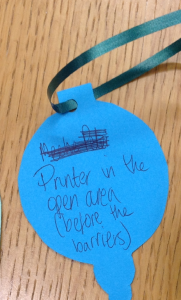 Printer in the
open area
(before the
barriers)